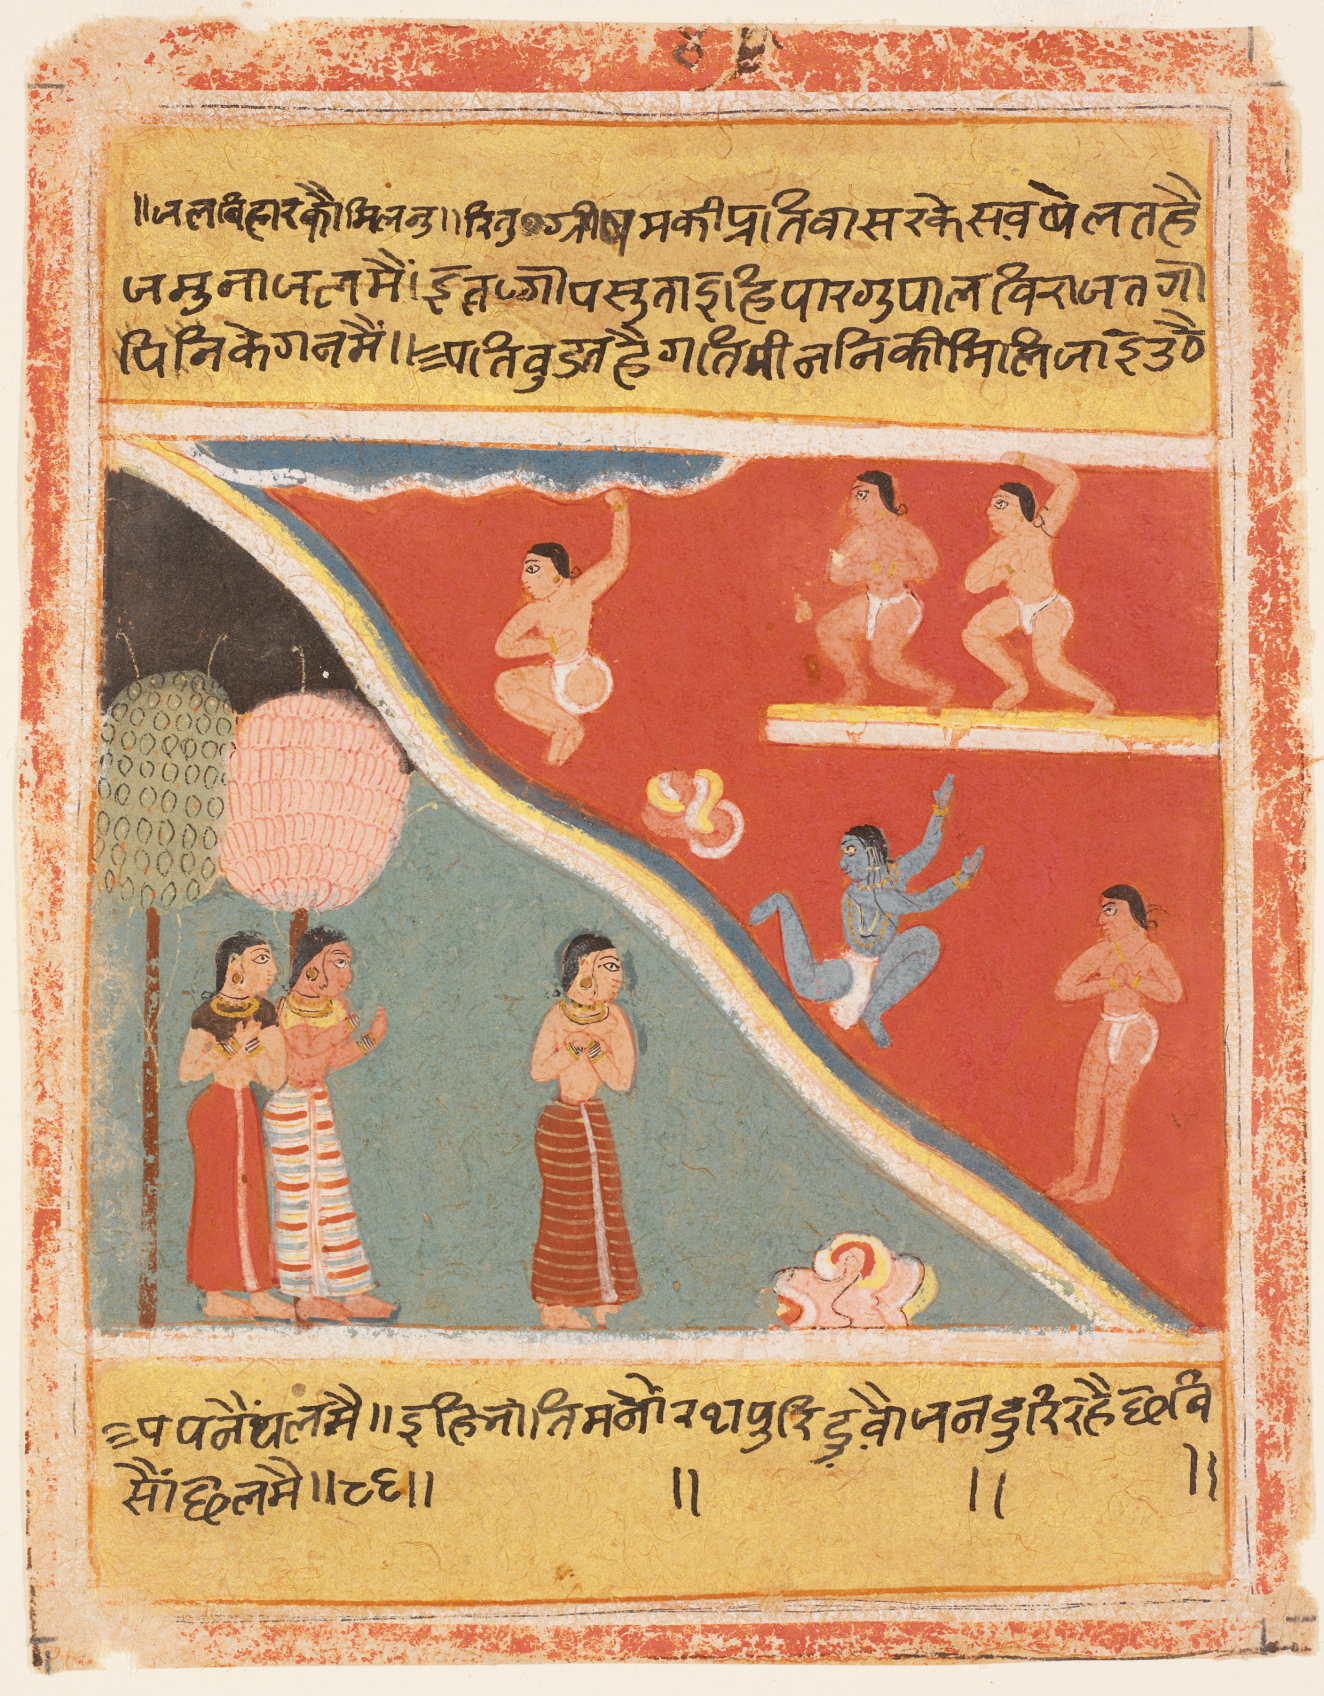 ॥जलबिहारकौमिलनु॥रितुग्रीषमकीप्रतिवासरकेसवषेलतहै
जमुनाजलमैं।इतगोपसुताइहिंपारगुपालविराजतगो
पिनिकेगनमैं॥पतिवुडतहैगतिमीननिकीमिलिजाइउठै
पपनैंथलमै॥इहिभातिमनोरथपुरिदुवौजनदुरिरहैछवि
सौंछलमै॥८६॥ ॥ ॥ ॥